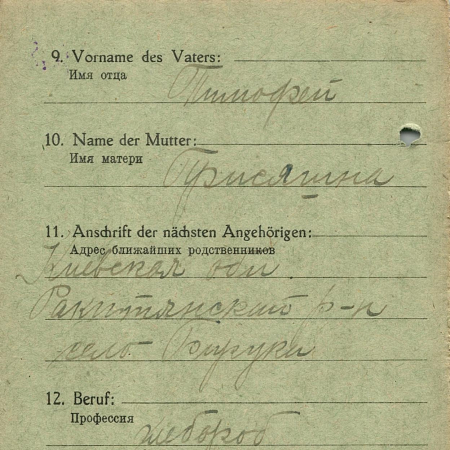 9. Vorname des Vaters:
Имя отца
Тимофей
10. Name der Mutter:
Имя матери
Присяшна
11. Anschrift der nächsten Angehörigen:
Адрес ближайших родственников
Киевская обл
Ракитянский р-н
село Бируки
12. Beruf:
Профессия
хлебороб